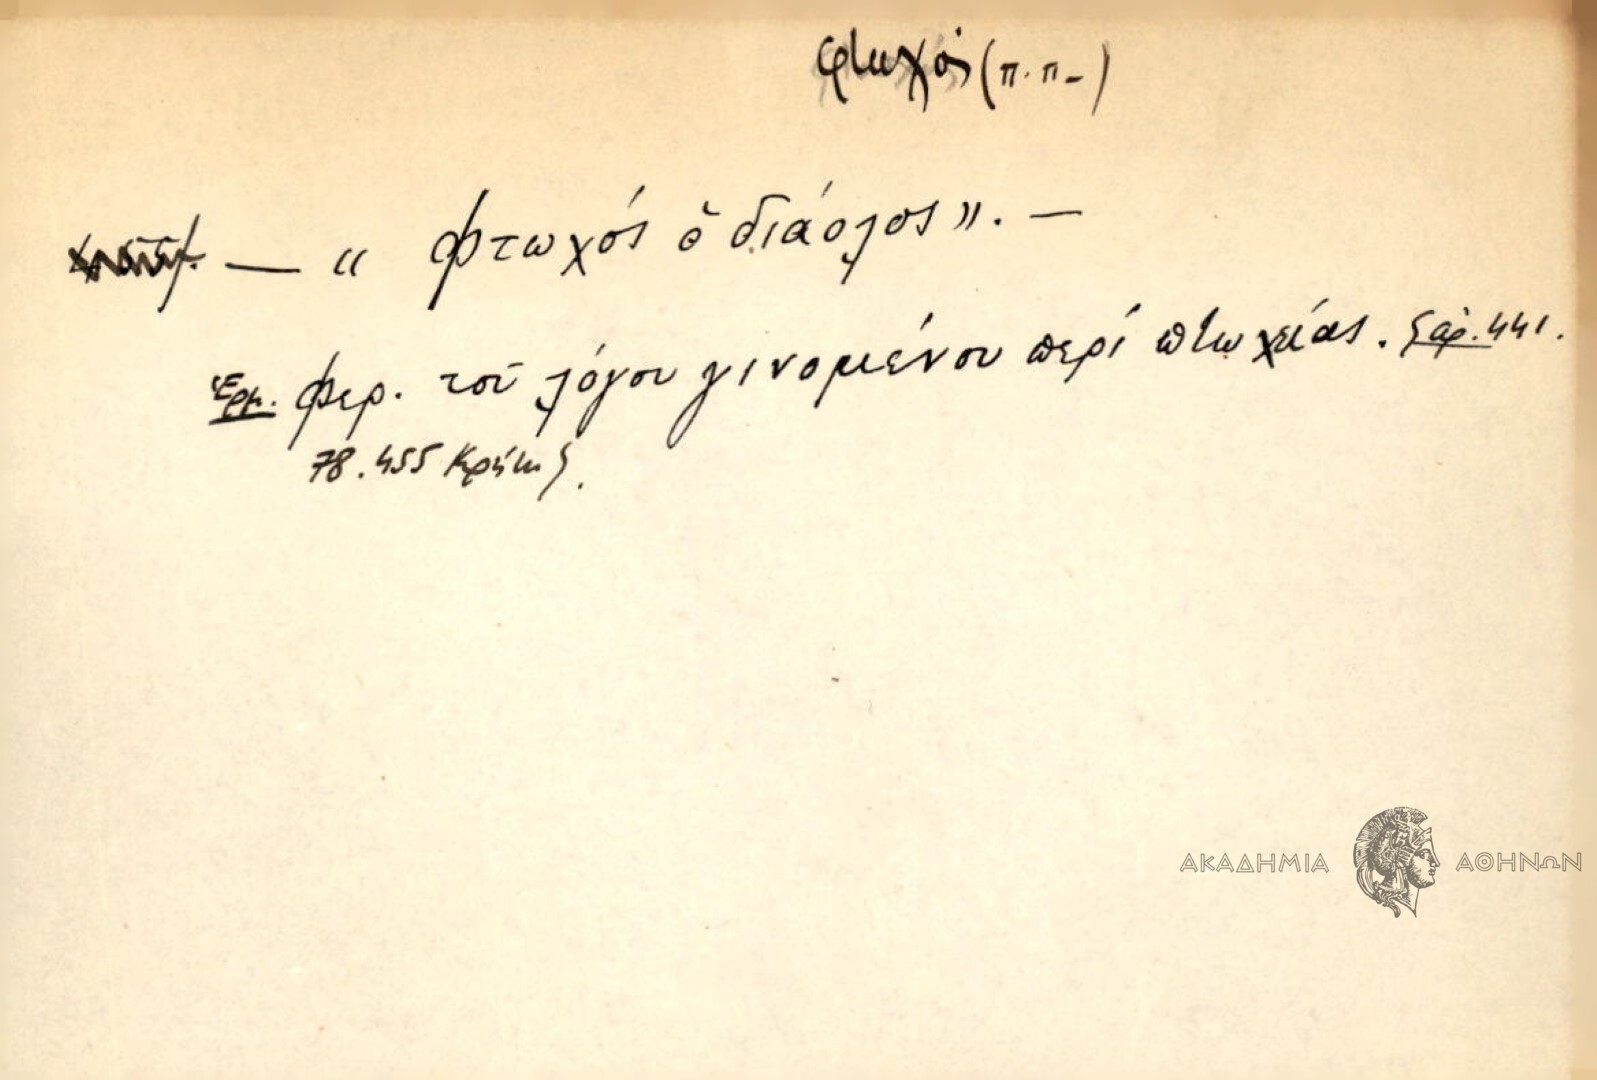 φτωχός (π.π-)
— « Φτωχός ὁ διάολος ». —
Ἑρμ. Φερ. τοῦ λόγου γινομένου περί πτωχείας. ἀρ. 441.
78.455 Κρήτης.
ΑΚΑΔΗΜΙΑ ΑΘΗΝΩΝ